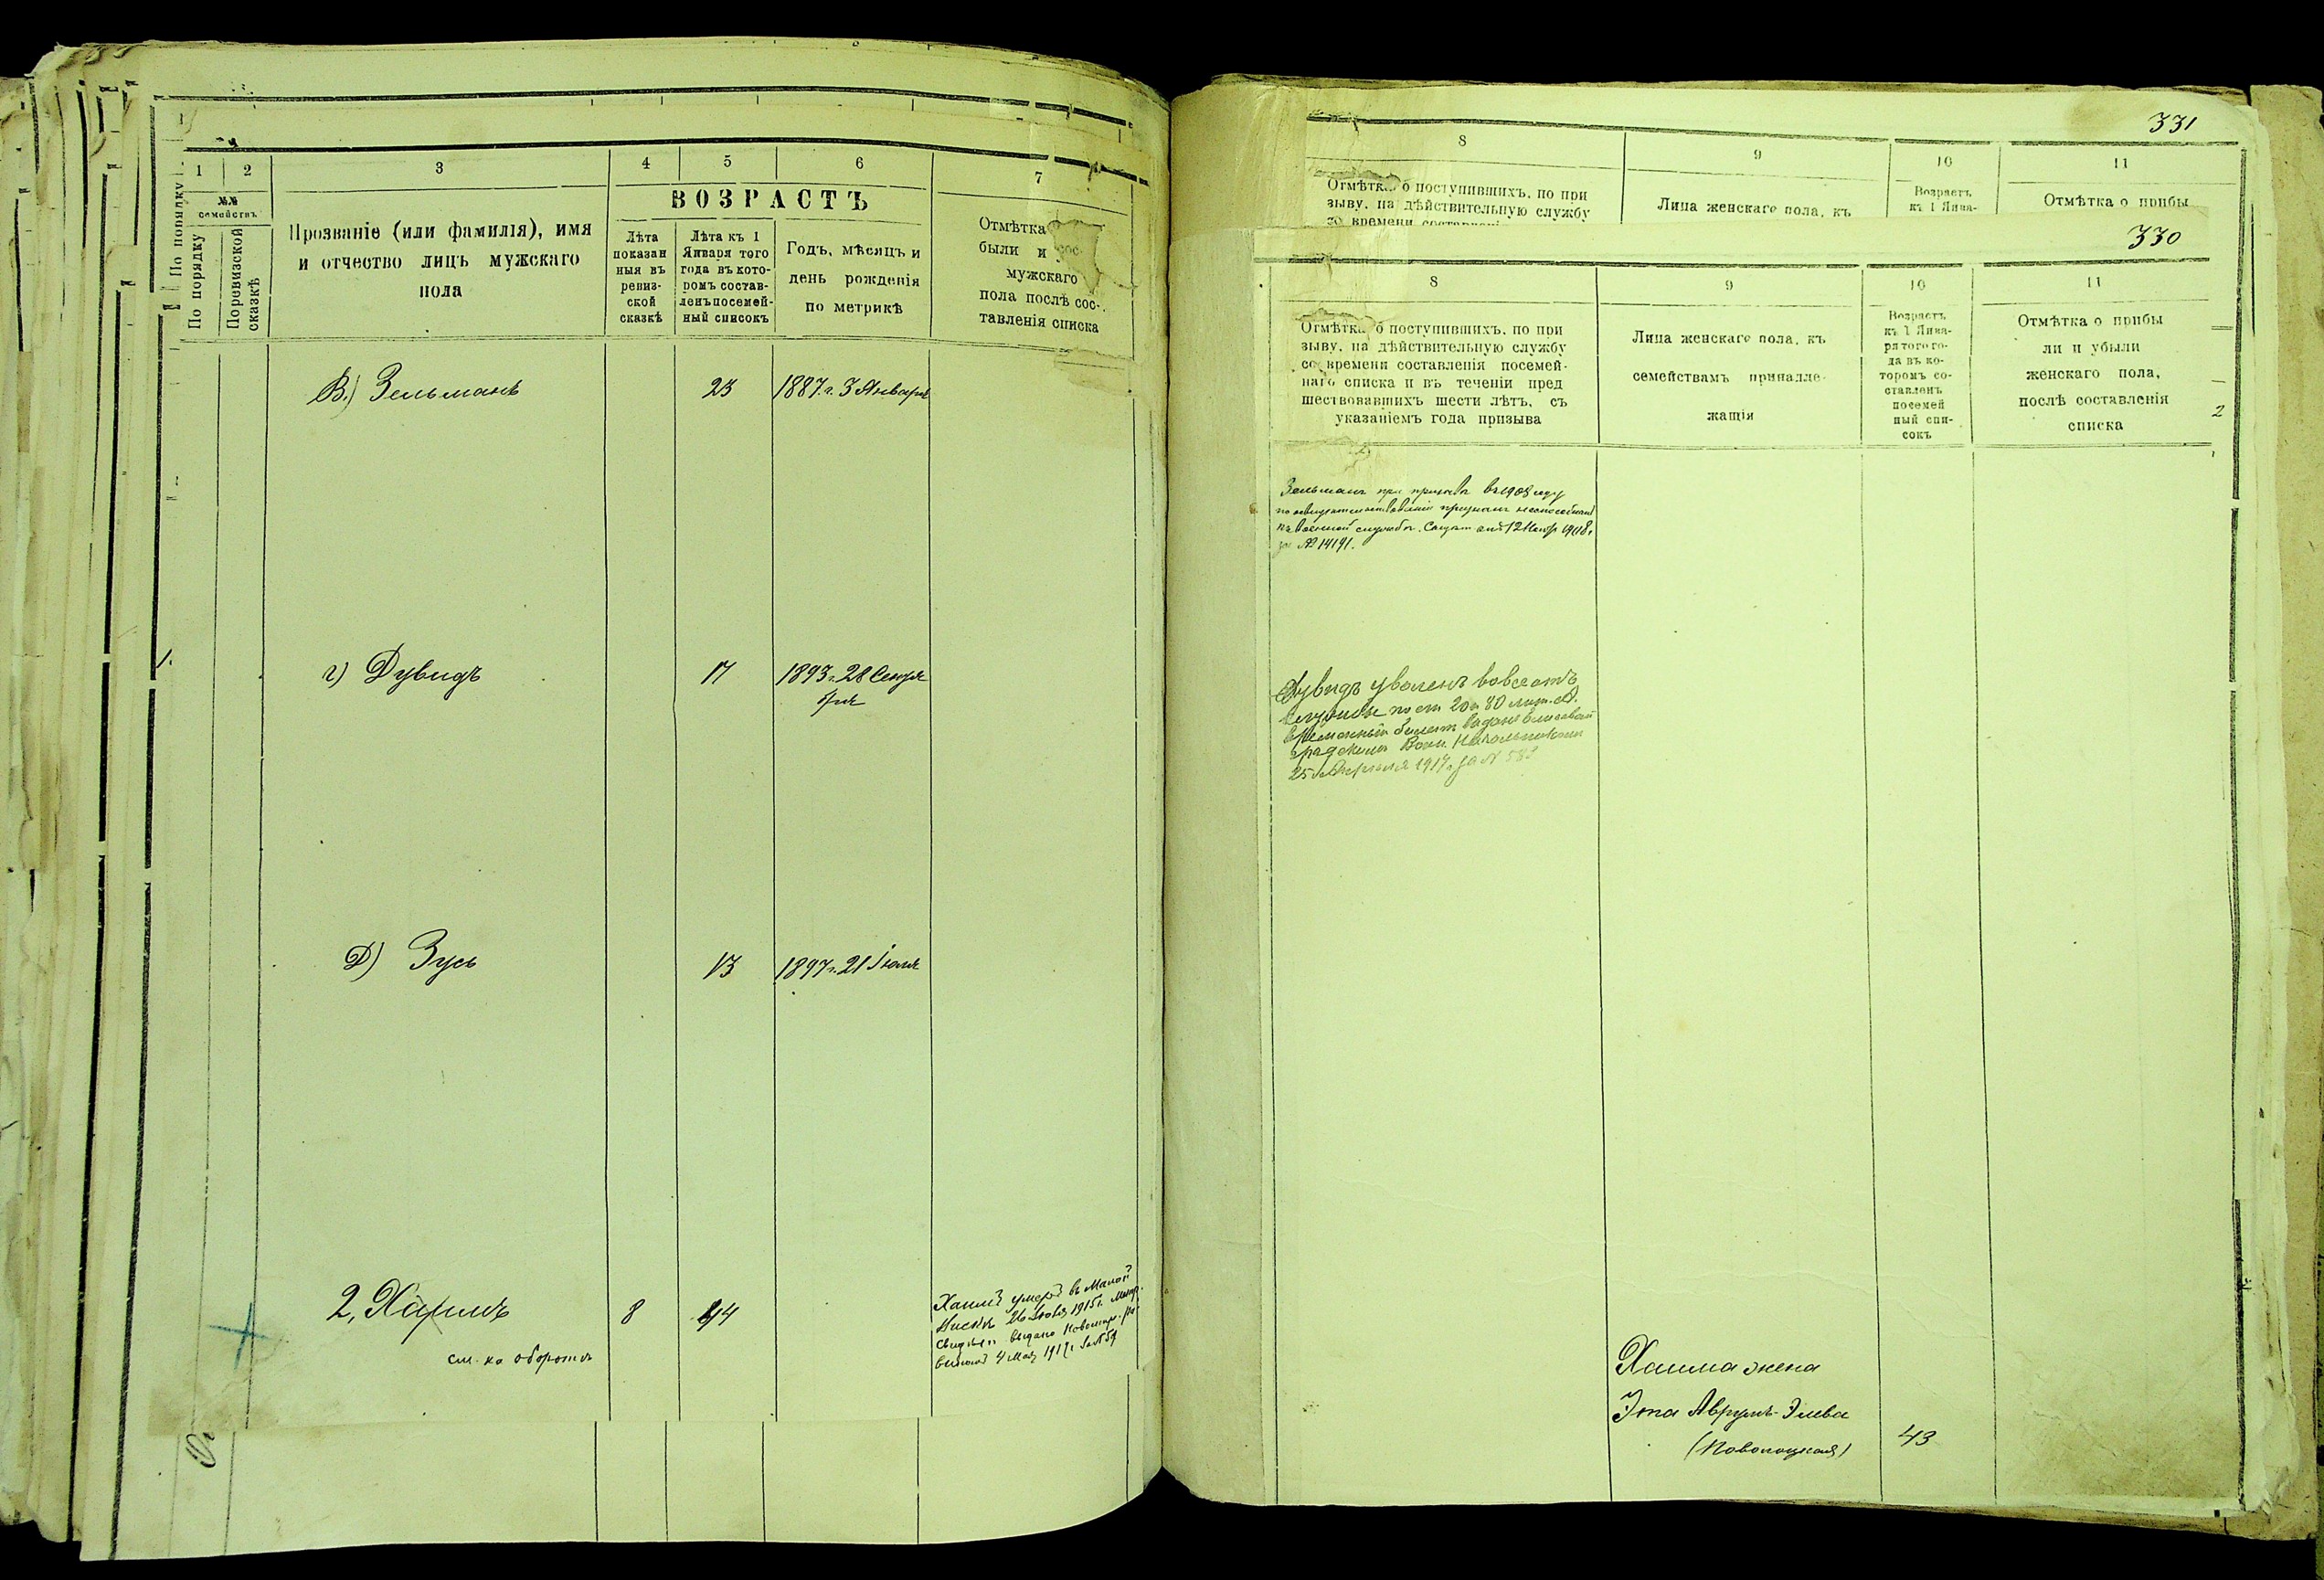 1
2
3
4
5
6
7
№№
семействъ
По порядку
По порядку
Поревизской
сказкѣ
Прозваніе (или фамилія), имя
и отчество лицъ мужскаго
пола
ВОЗРАСТЪ
Лѣта
показан
ныя въ
ревиз-
ской
сказкѣ
Лѣта къ 1
Января того
года въ кото-
ромъ состав-
ленъ посемей-
ный списокъ
Годъ, мѣсяцъ и
день рожденія
по метрикѣ
Отмѣтка
были и
мужскаго
пола послѣ сос-
тавленія списка
В.) Зельманъ
23
1887 г. 3 Января
1.
г) Дувидъ
17
1893 г. 28 Сентя
бря
Д) Зусь
13
1897 г. 21 Іюля
2, Хаимъ
8
44
см. на оборотѣ
Хаимъ умеръ въ Малой
1915 г.
выдано
4 Мая 1917 г. за № 59
331
8
9
10
11
Отмѣтка о поступившихъ, по при
зыву, на дѣйствительную службу
Лица женскаго пола, къ
Возрастъ
къ 1 Янва-
Отмѣтка о прибы
330
8
9
10
11
Отмѣтка о поступившихъ, по при
зыву, на дѣйствительную службу
со времени составленія посемей-
наго списка и въ теченіи пред
шествовавшихъ шести лѣтъ, съ
указаніемъ года призыва
Лица женскаго пола, къ
семействамъ принадле-
жащія
Возрастъ
къ 1 Янва-
ря того го-
да въ ко-
торомъ со-
ставленъ
посемей
ный спи-
сокъ
Отмѣтка о прибы
ли и убыли
женскаго пола,
послѣ составленія
списка
2
Зельманъ при призывѣ въ 1908 году
по освидетельствованіи признанъ неспособнымъ
къ военной службѣ. 12
за № 14191.
Дувидъ уволенъ вовсе отъ
службы по ст 20 и 80
временный билетъ выданъ Елисавет
градскимъ Воин. Начальникомъ
25 Апрѣля 1917 г. за №
Хаима жена
Эта Аврумъ-Элева
43